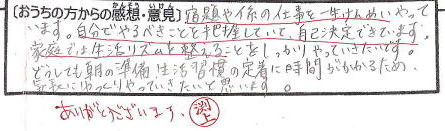 〔おうちの方からの感想・意見〕宿題や係の仕事を一生けんめいやって
います。自分でやるべきことを把握していて、自己決定できています。
家庭でも生活リズムを整えることをしっかりやっていきたいです。
どうしても朝の準備、生活習慣の定着に時間がかかるため、
気長にゆっくりやっていきたいと思います。
ありがとうございます。渕上